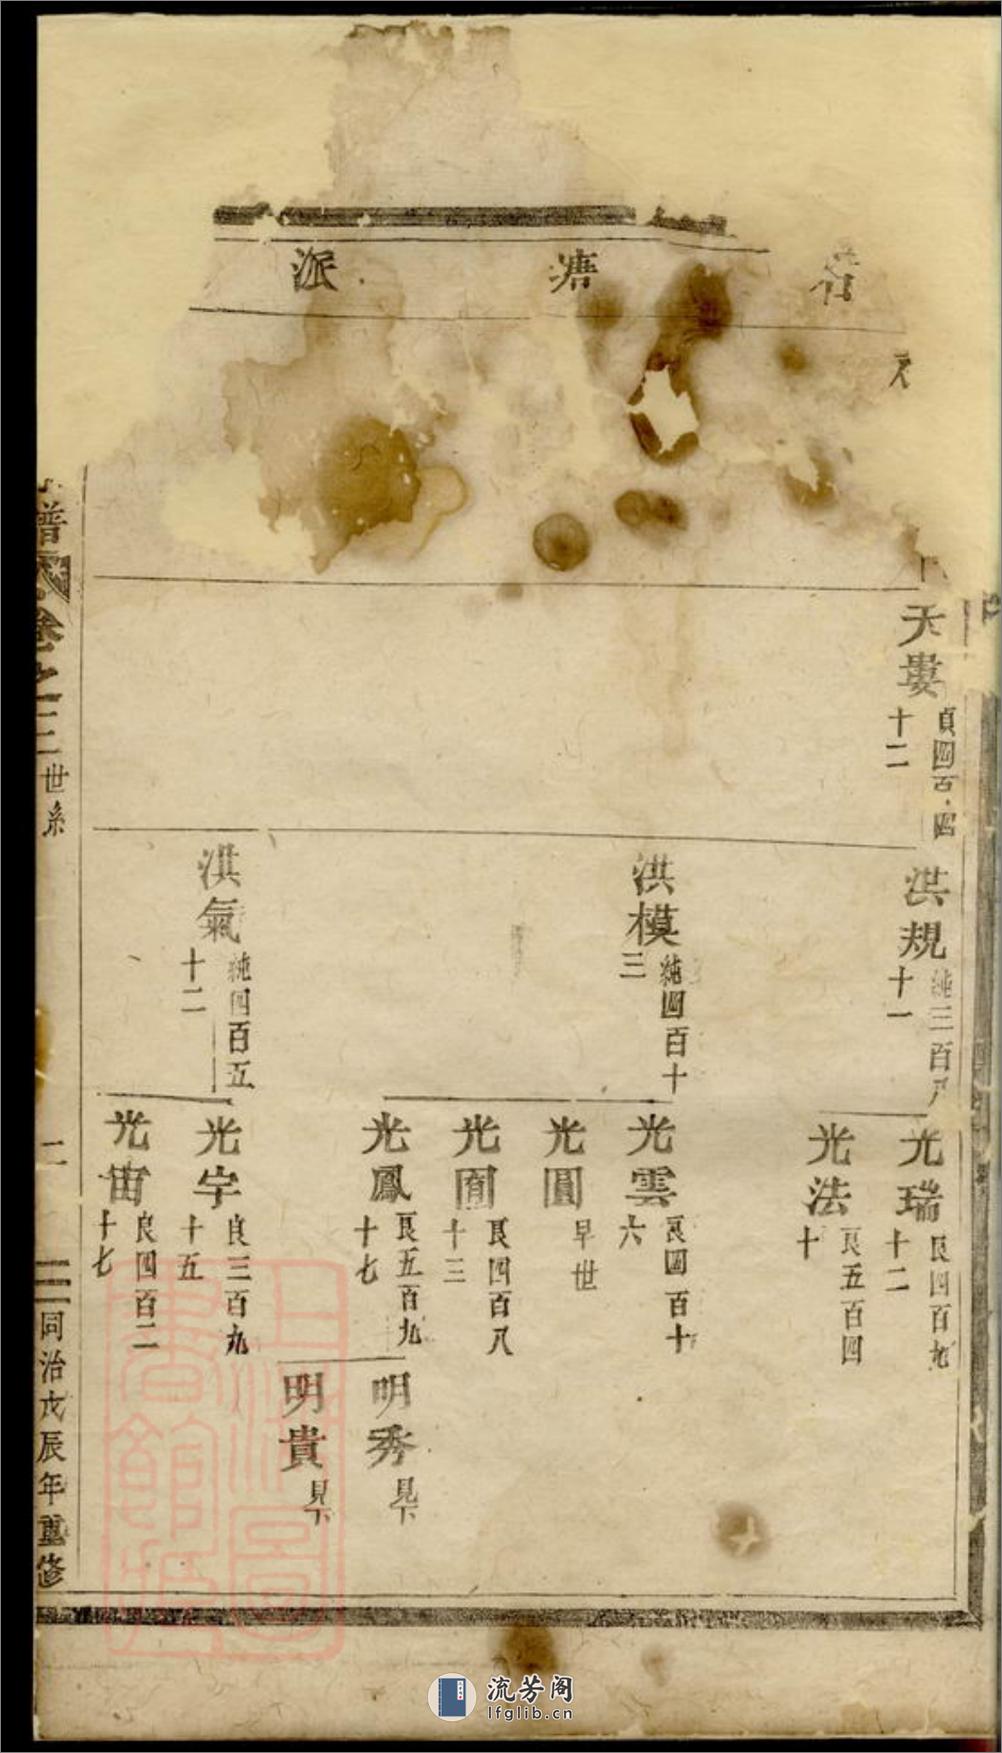 塘
派
天婁
貞四百四
十二
洪規
純三百八
十一
洪模
純四百十
三
洪氣
純四百五
十二
光瑞
良四百九
十二
光法
良五百四
十
光雲
良四百十
六
光圓
早世
光囿
良四百八
十三
光鳳
良五百九
十七
光宇
良三百九
十五
光宙
良四百二
十七
明秀
見下
明貴
見下
譜
卷之二
世系
二
同治戊辰年重修
上海圖書館藏
流芳阁
lfglib.cn